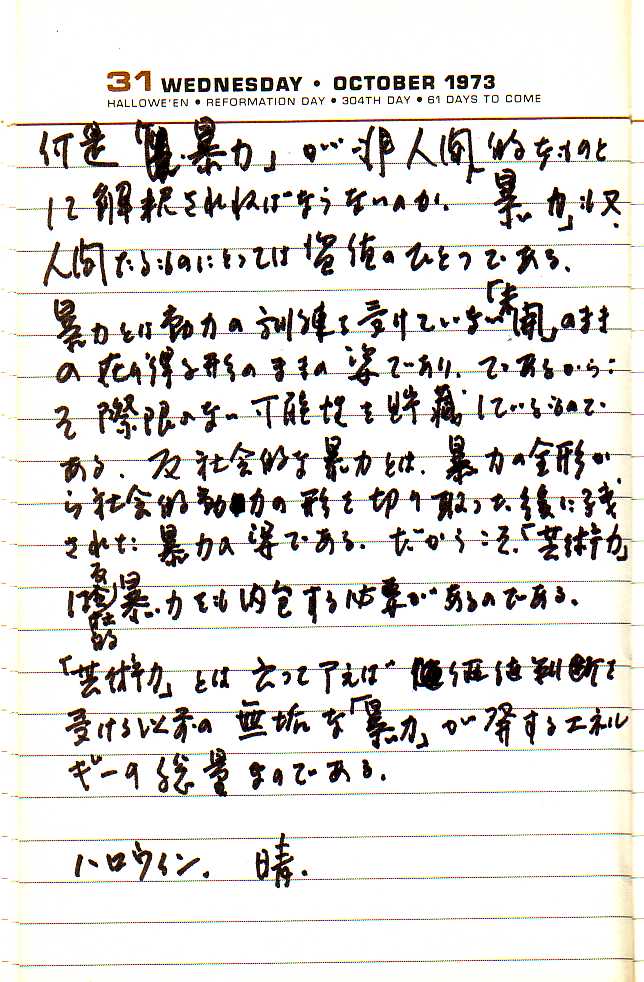 31 WEDNESDAY • OCTOBER 1973
HALLOWE'EN • REFORMATION DAY • 304TH DAY • 61 DAYS TO COME
何是「暴力」が非人間的なものと
して解釈されねばならないのか。「暴力」も又、
人間たるものにとっては資質のひとつである。
暴力とは動力の訓練を受けていない「未開」のまま
の 形のままの姿であり、であるからこ
そ際限のない可能性を貯蔵しているので
ある。反社会的な暴力とは、暴力の全形か
ら社会的動力の形を切り取った後に残
された暴力の姿である。だからこそ、「芸術力」
は反社会的暴力をも内包する必要があるのである。
「芸術力」とは云って了えば 価値判断を
受ける以前の無垢な「暴力」が発するエネル
ギーの総量なのである。
ハロウィン。 晴。